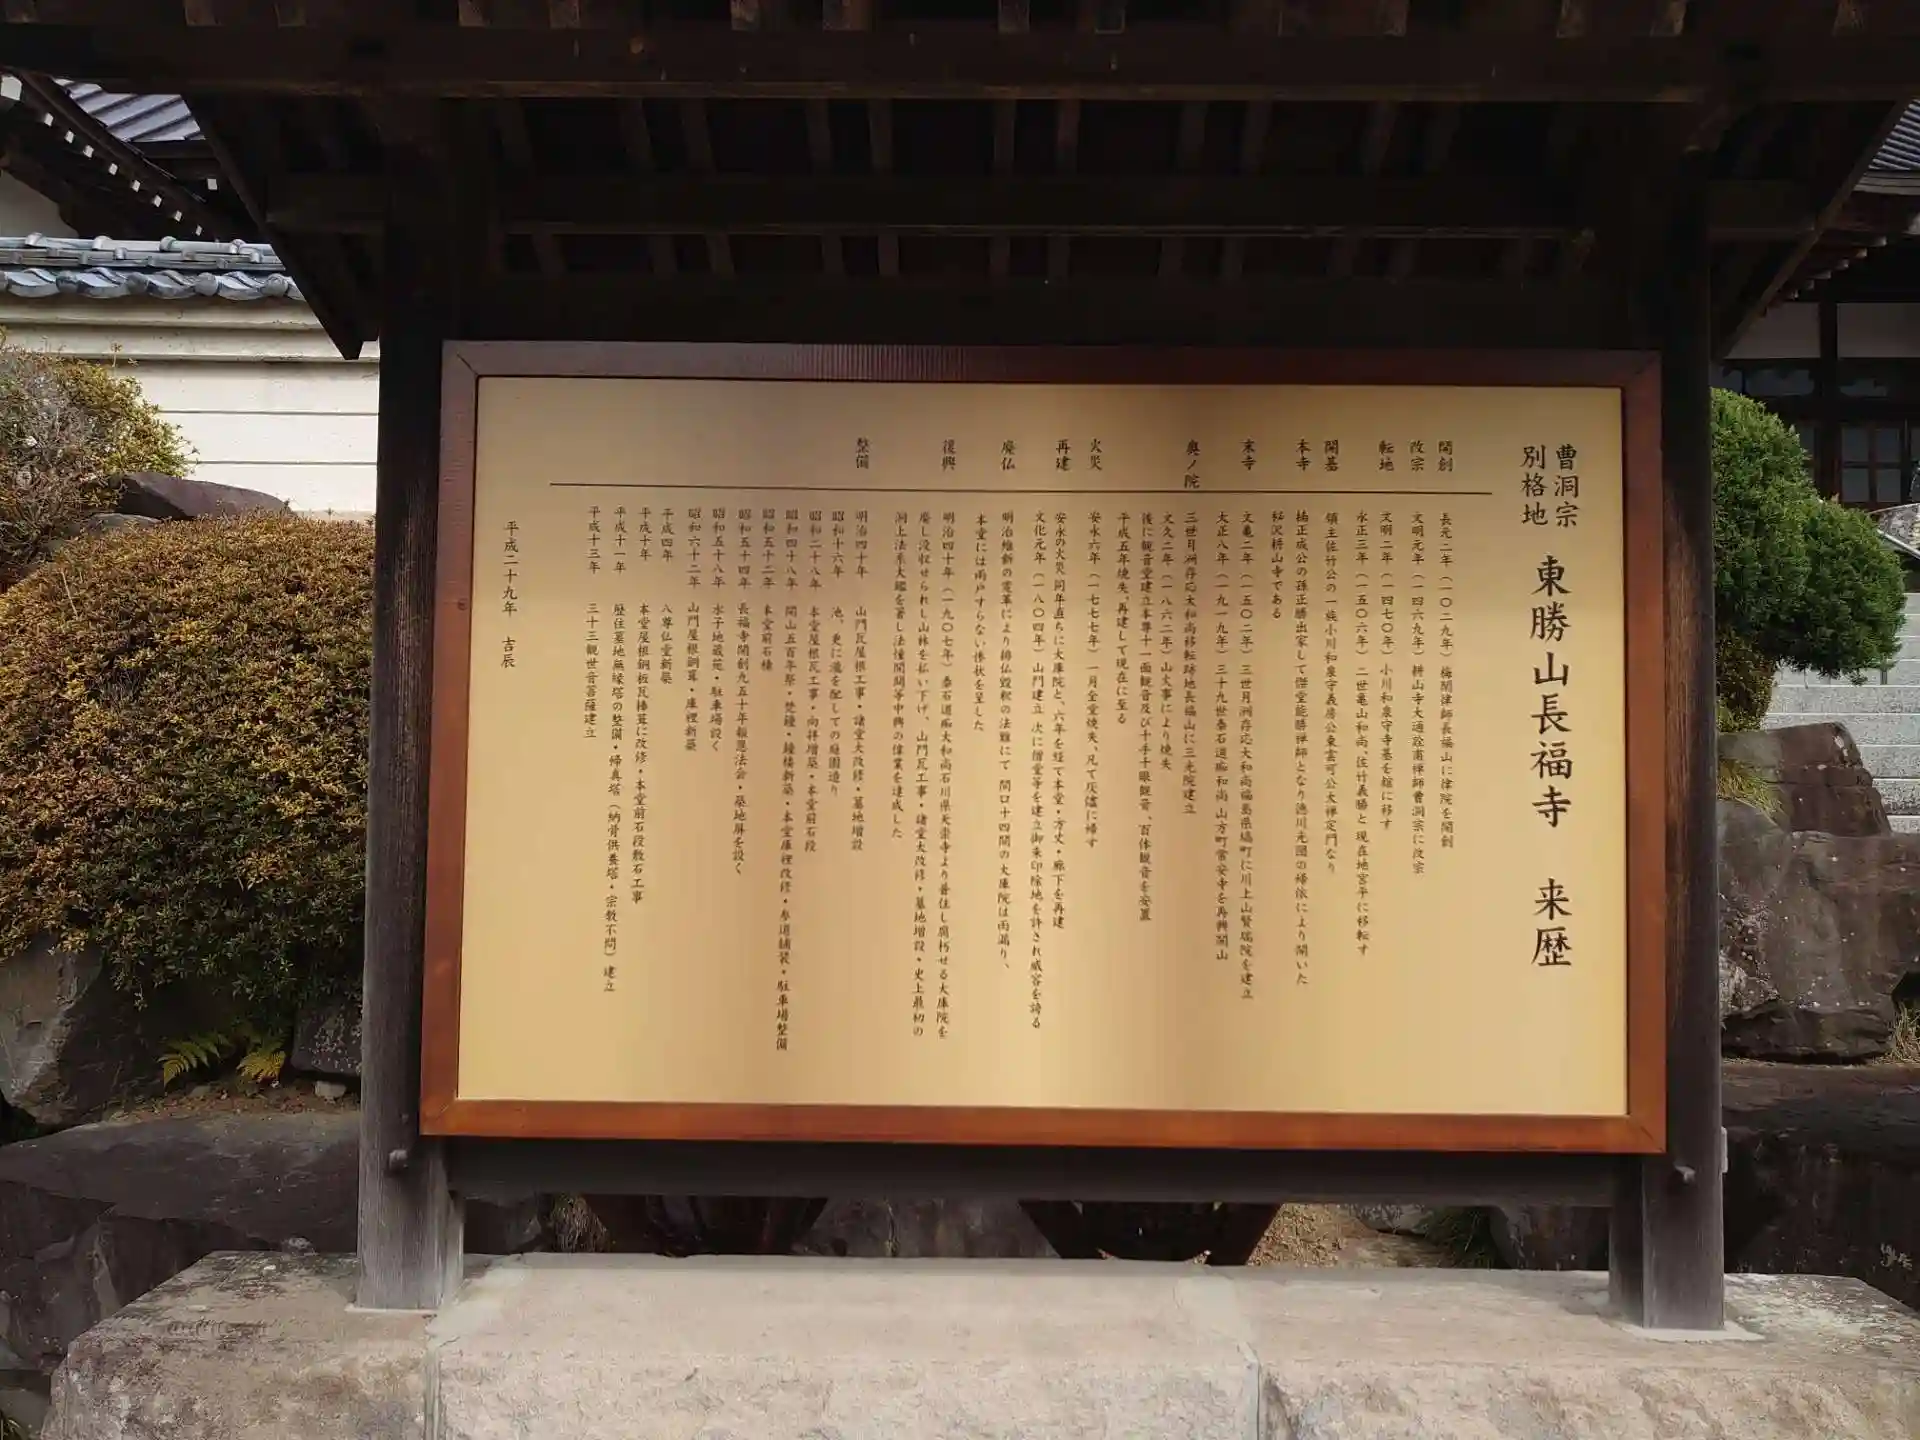 曹洞宗
別格地
東勝山長福寺　来歴
開創　長元二年（一〇二九年）梅閑律師長福山に律院を開創
改宗　文明元年（一四六九年）耕山寺大通詮甫禅師曹洞宗に改宗
転地　文明二年（一四七〇年）小川和泉守寺基を舘に移す
永正三年（一五〇六年）二世亀山和尚、佐竹義勝と現在地宮平に移転す
開基　領主佐竹公の一族小川和泉守義房公東雲可公大禅定門なり
本寺　楠正成公の孫正勝出家して傑堂能勝禅師となり徳川光圀の帰依により開いた
秘沢耕山寺である
末寺　文亀二年（一五〇二年）三世月洲存応大和尚福島県塙町に川上山賢瑞院を建立
大正八年（一九一九年）三十九世泰石道痴和尚山方町常安寺を再興開山
奥ノ院　三世月洲存応大和尚移転跡地長福山に三光院建立
文久二年（一八六二年）山火事により焼失
後に観音堂建立本尊十一面観音及び十手千眼観音、百体観音を安置
平成五年焼失、再建して現在に至る
火災　安永六年（一七七七年）一月全堂焼失、凡て灰燼に帰す
再建　安永の火災 同年直ちに大庫院と、六年を経て本堂・方丈・廊下を再建
文化元年（一八〇四年）山門建立 次に僧堂等を建立御朱印除地を許され威容を誇る
廃仏　明治維新の変革により排仏毀釈の法難にて 間口十四間の大庫院は雨漏り、
本堂には雨戸すらない惨状を呈した
復興　明治四十年（一九〇七年）泰石道痴大和尚石川県天崇寺より普住し腐朽せる大庫院を
廃し没収せられし山林を払い下げ、山門瓦工事・諸堂大改修・墓地増設・史上最初の
洞上法系大鑑を著し法憧開闢等中興の偉業を達成した
整備　明治四十年　山門瓦屋根工事・諸堂大改修・墓地増設
昭和十六年　池、更に滝を配しての庭園造り
昭和二十八年　本堂屋根瓦工事・向拝増築・本堂前石段
昭和四十八年　開山五百年祭・梵鐘・鐘楼新築・本堂庫裡改修・参道舗装・駐車場整備
昭和五十二年　本堂前石積
昭和五十四年　長福寺開創九五十年報恩法会・築地屏を設く
昭和五十八年　水子地蔵苑・駐車場設く
昭和六十二年　山門屋根銅葺・庫裡新築
平成四年　八尊仏堂新築
平成十年　本堂屋根銅板瓦棒葺に改修・本堂前石段敷石工事
平成十一年　歴住墓地無縁塔の整備・帰真塔（納骨供養塔・宗教不問）建立
平成十三年　三十三観世音菩薩建立
平成二十九年　吉辰